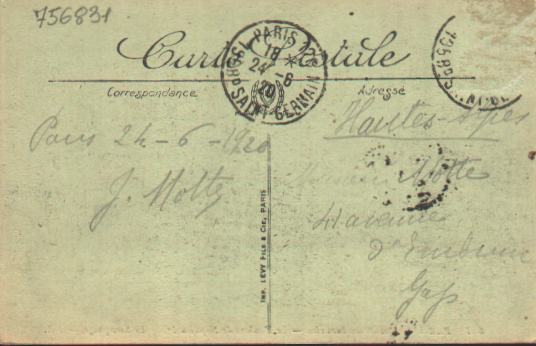 756831
Carte Postale
PARIS
18
24 - 6
20
138 Bd SAINT-GERMAIN
Correspondance
Adresse
Hautes-Alpes
Paris 24-6-1920
J. Motte
Motte
41 avenue
d'Embrun
Gap
IMP. LEVY FILS & CIE, PARIS